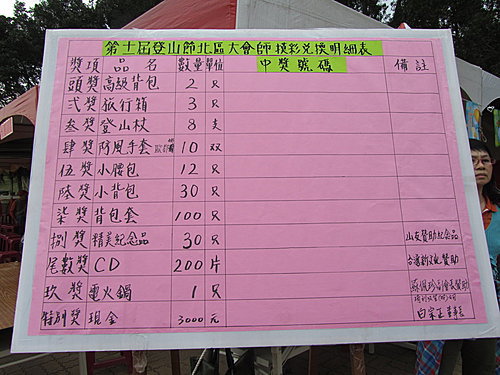 第十屆登山節北區大會師 摸彩兌換明細表
獎項 品名 數量 單位 中獎號碼 備註
頭獎 高級背包 2 只
弍獎 旅行箱 3 只
叁獎 登山杖 8 支
肆獎 防風手套 10 双
伍獎 小腰包 12 只
陸獎 小背包 30 只
柒獎 背包套 100 只
捌獎 精美紀念品 30 只 山友贊助紀念品
尾數獎 CD 200 片
玖獎 電火鍋 1 只
特別獎 現金 3000 元